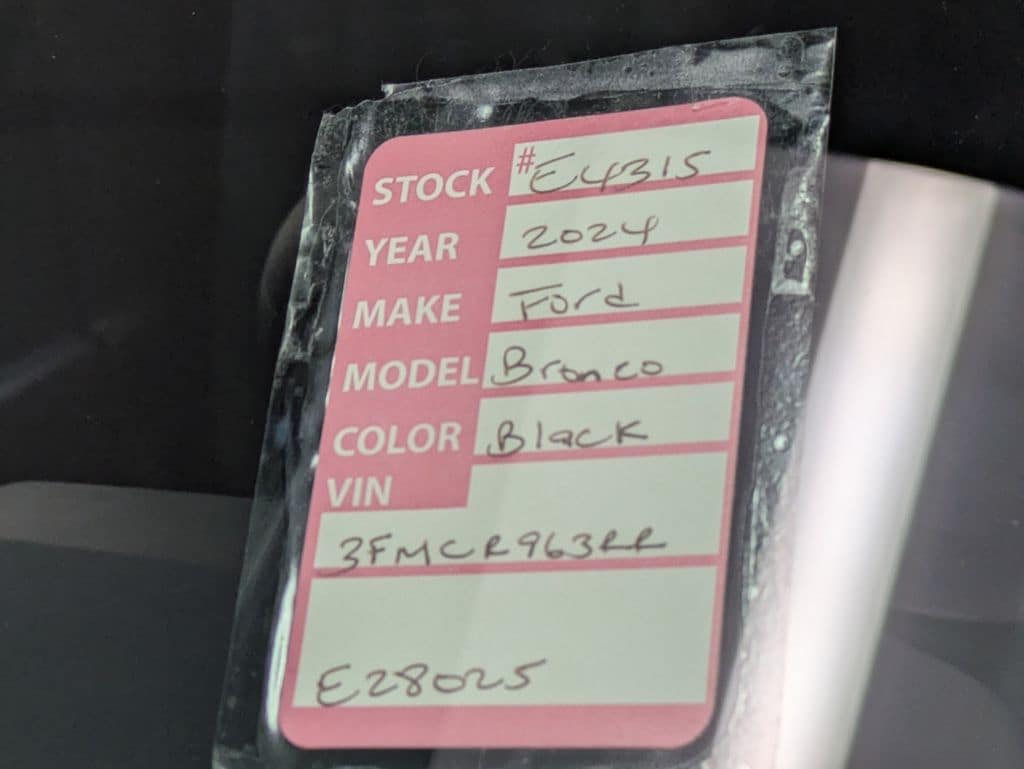 STOCK #E4315
YEAR 2024
MAKE Ford
MODEL Bronco
COLOR Black
VIN
3FMCR963RR
E28025